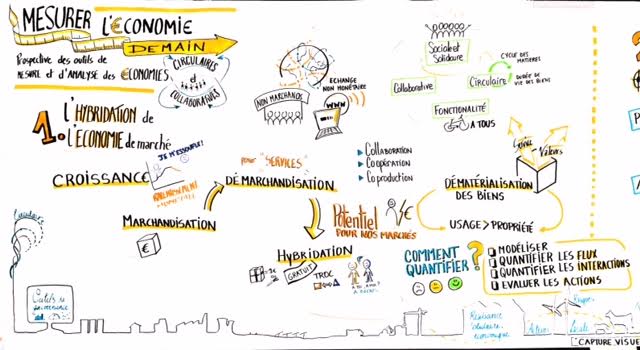 MESURER L'€CONOMIE
DEMAIN
Prospective des outils de
MESURE et d'ANALYSE des €CONOMIES
CIRCULAIRES
et
COLLABORATIVES
1. L'HYBRIDATION de
L'ECONOMIE de marché
JE M'ESSOUFLE!
CROISSANCE
MARCHANDISATION
€
NON MARCHANDE
ECHANGE
NON MONÉTAIRE
WWW
"SERVICES"
DÉMARCHANDISATION
HYBRIDATION
GRATUIT
TROC
Potentiel
POUR NOS MARCHÉS
€
Social et
Solidaire
Collaborative
Circulaire
CYCLE DES
MATIERES
DURÉE DE
VIE DES BIENS
FONCTIONALITÉ
A TOUS
COLLABORATION
Coopération
Coproduction
Valeurs
DÉMATÉRIALISATION
DES BIENS
USAGE > PROPRIÉTÉ
COMMENT
QUANTIFIER ?
MODÉLISER
QUANTIFIER LES FLUX
QUANTIFIER LES INTERACTIONS
EVALUER LES ACTIONS
Outils de
gouvernance
Résistance
Acteurs
Locale
CAPTURE VISUE